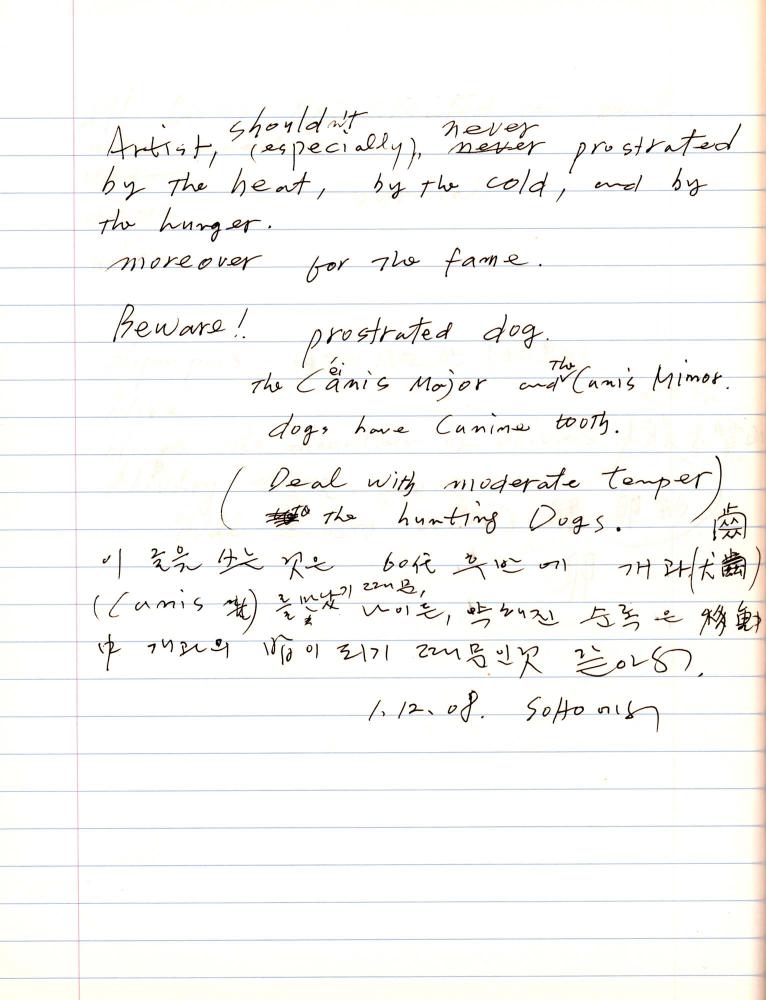 shouldn't never
Artist, (especially), never prostrated
by the heat, by the cold, and by
the hunger.
moreover for the fame.
Beware! prostrated dog.
éi The
the Canis Major and Canis Minor.
dogs have Canine tooth.
( Deal with moderate temper )
to the hunting Dogs.
齒
이 글을 쓰는 것은 60代 후반에 개과(犬齒)
(Canis) 를 만났기 때문,
나이든, 약해진 순록은 移動
中 개과의 밥이 되기 때문인것 같아서.
1.12.08. SoHo에서